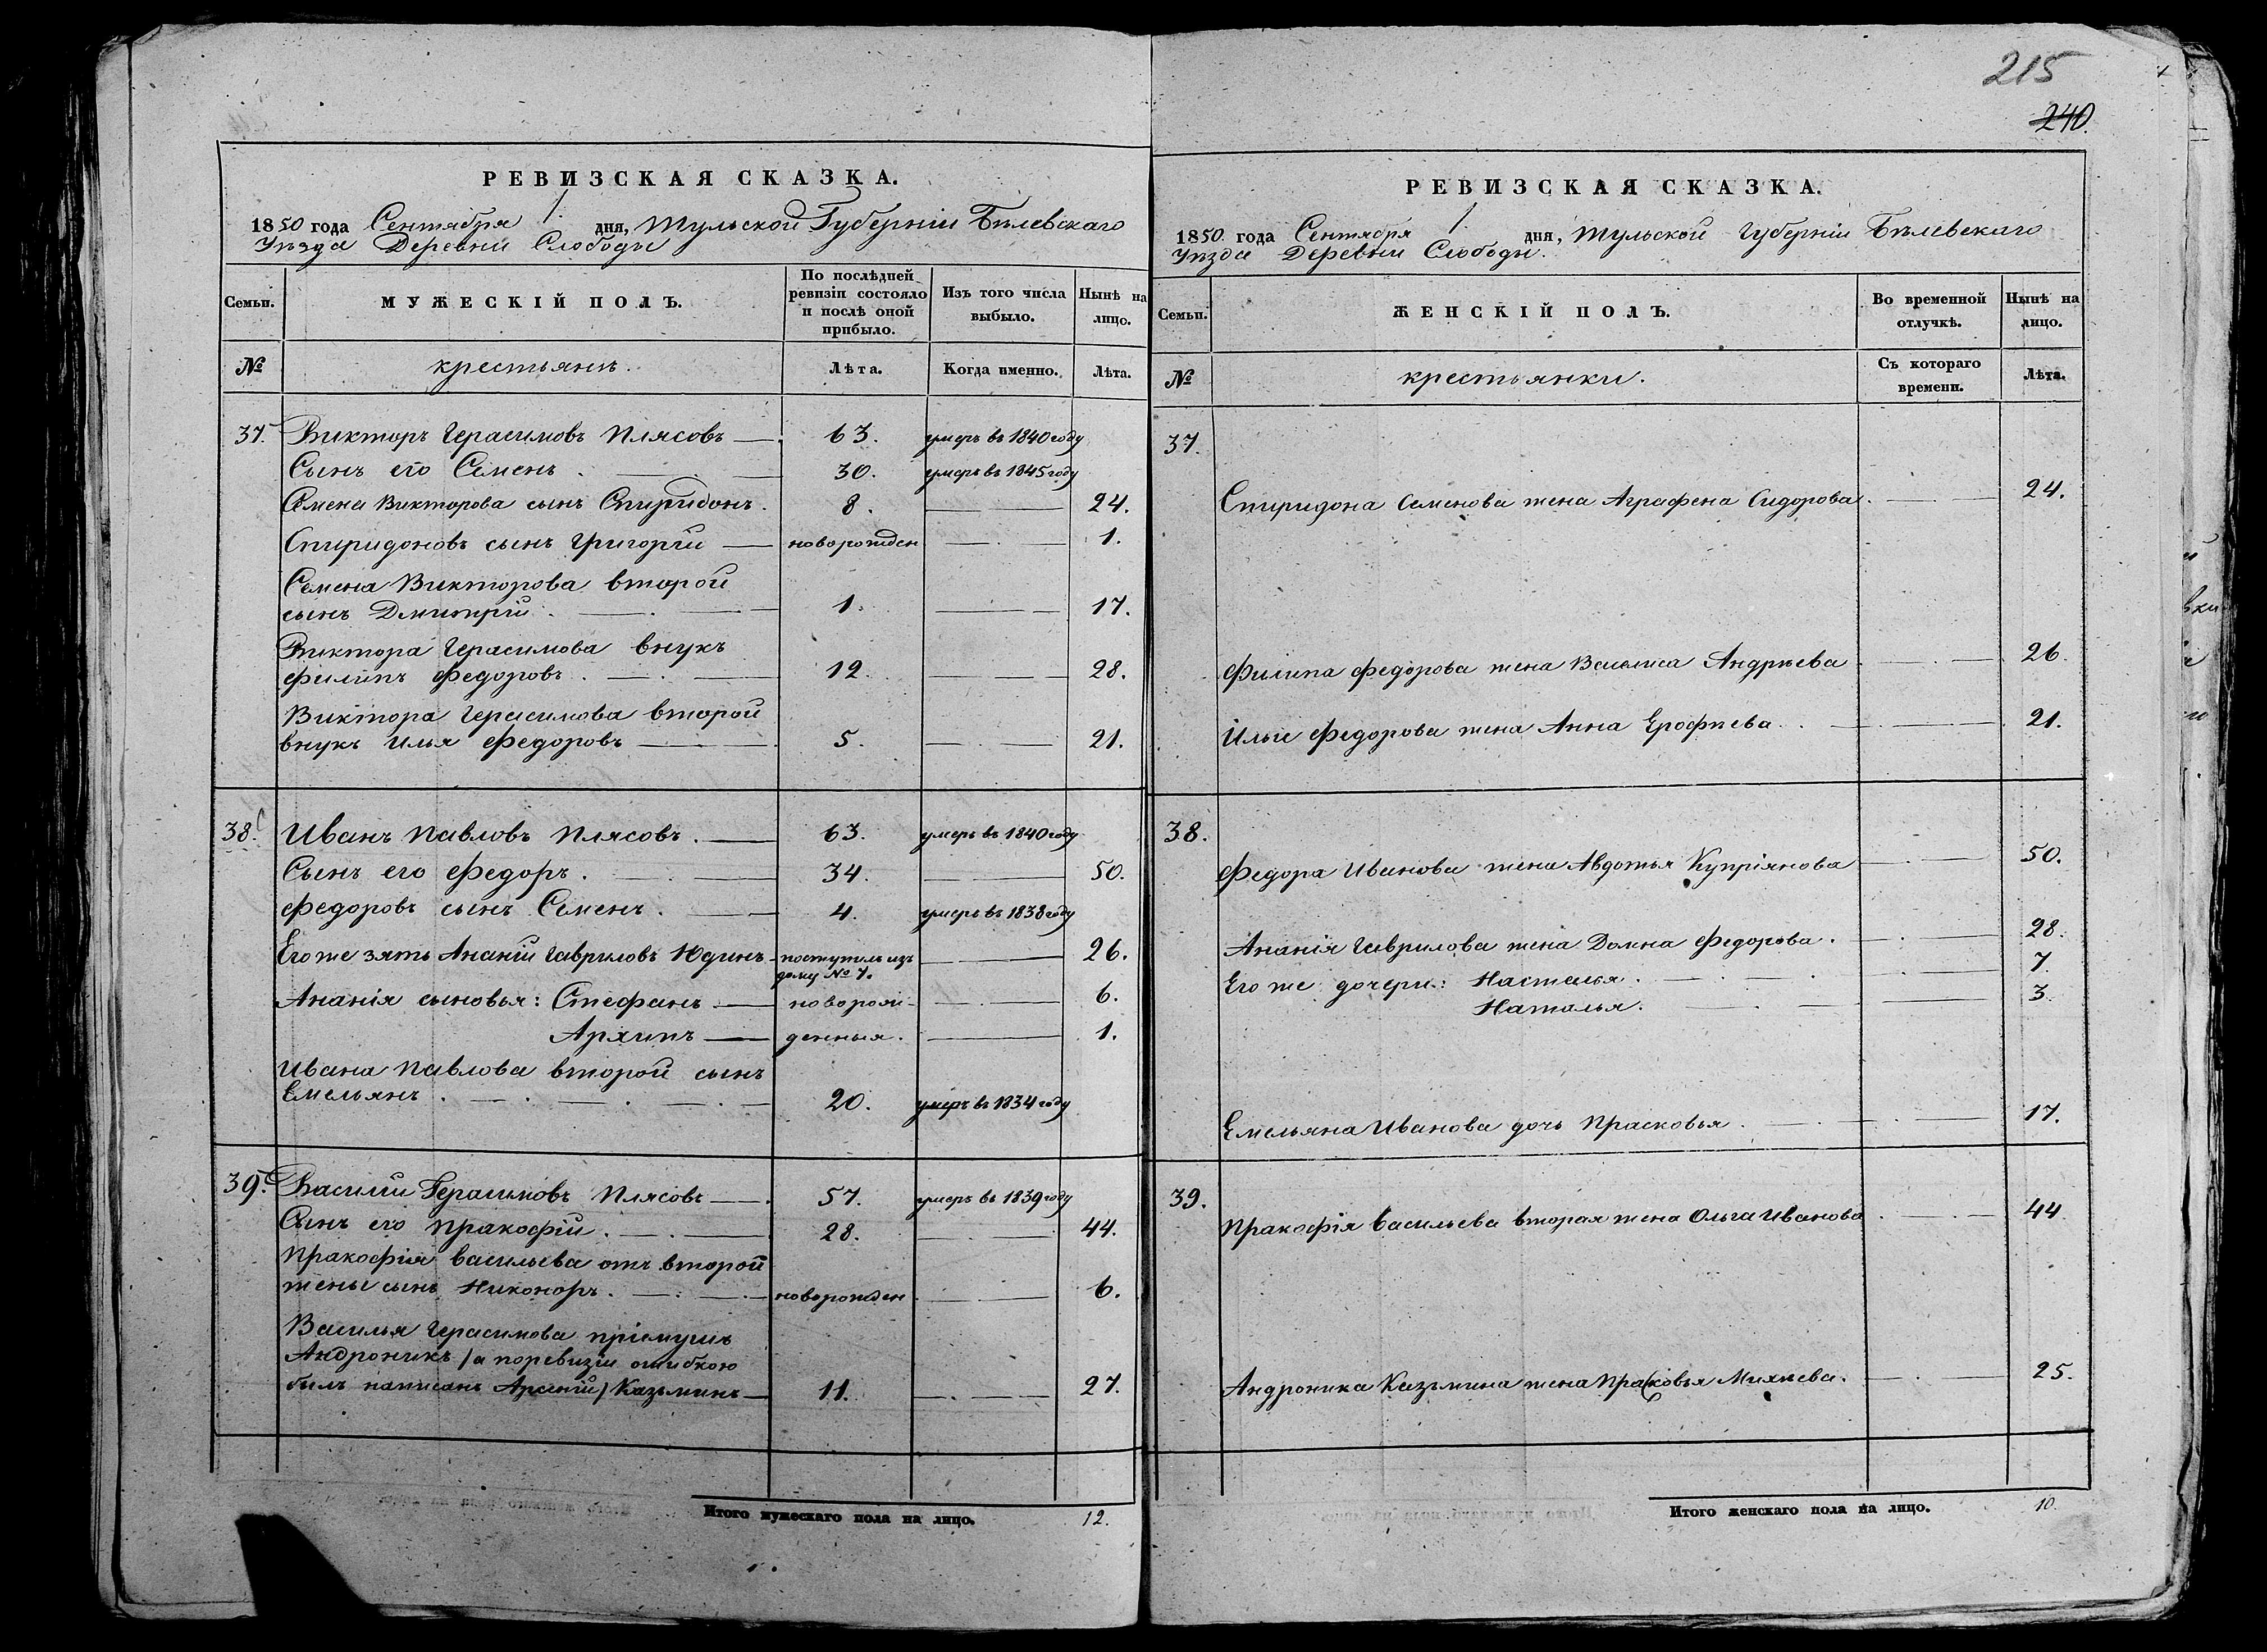 215
240.
РЕВИЗСКАЯ СКАЗКА.
1850 года Сентября 1. дня, Тульской Губерніи Бѣлевскаго
Уѣзда Деревни Слободы
Семьи.
МУЖЕСКІЙ ПОЛЪ.
По послѣдней ревизіи состояло и послѣ оной прибыло.
Изъ того числа выбыло.
Нынѣ на лицо.
№
крестьянъ.
Лѣта.
Когда именно.
Лѣта.
37. Викторъ Герасимовъ Плясовъ — 63. умеръ въ 1840 году
Сынъ его Семенъ. — 30. умеръ въ 1845 году
Семена Викторова сынъ Спиридонъ. 8. — 24.
Спиридоновъ сынъ Григорій — новорожден — 1.
Семена Викторова второй
сынъ Дмитрій. — 1. — 17.
Виктора Герасимова внукъ
Филипъ Федоровъ. — 12. — 28.
Виктора Герасимова второй
внукъ Илья Федоровъ — 5. — 21.
38. Иванъ Павловъ Плясовъ. — 63. умеръ въ 1840 году
Сынъ его Федоръ. — 34. — 50.
Федоровъ сынъ Семенъ. — 4. умеръ въ 1838 году
Его же зять Ананій Гавриловъ Юдинъ — поступилъ изъ — 26.
дому № 7.
Ананія сыновья: Стефанъ — новорож- — 6.
Архипъ — денныя. — 1.
Ивана Павлова второй сынъ
Емельянъ. — 20. умеръ въ 1834 году
39. Василій Герасимовъ Плясовъ — 57. умеръ въ 1839 году
Сынъ его Пракофій. — 28. — 44.
Пракофія Васильева отъ второй
жены сынъ Никоноръ. — новорожден — 6.
Василья Герасимова пріемушъ
Андроникъ /а поревизіи ошибкою
былъ написанъ Арсеній/ Казьминъ — 11. — 27.
Итого мужескаго пола на лицо. 12.
РЕВИЗСКАЯ СКАЗКА.
1850. года Сентября 1. дня, Тульской Губерніи Бѣлевскаго
Уѣзда Деревни Слободы.
Семьи.
ЖЕНСКІЙ ПОЛЪ.
Во временной отлучкѣ.
Нынѣ на лицо.
№
крестьянки.
Съ котораго времени.
Лѣта.
37.
Спиридона Семенова жена Аграфена Сидорова. — 24.
Филипа Федорова жена Василиса Андрѣева. — 26.
Ильи Федорова жена Анна Ерофѣева. — 21.
38.
Федора Иванова жена Авдотья Купріянова — 50.
Ананія Гаврилова жена Домна Федорова. — 28.
Его же дочери: Настасья. — 7.
Наталья. — 3.
Емельяна Иванова дочь Прасковья. — 17.
39.
Пракофія Васильева вторая жена Ольга Иванова — 44.
Андроника Казьмина жена Прасковья Михѣева. — 25.
Итого женскаго пола на лицо. 10.